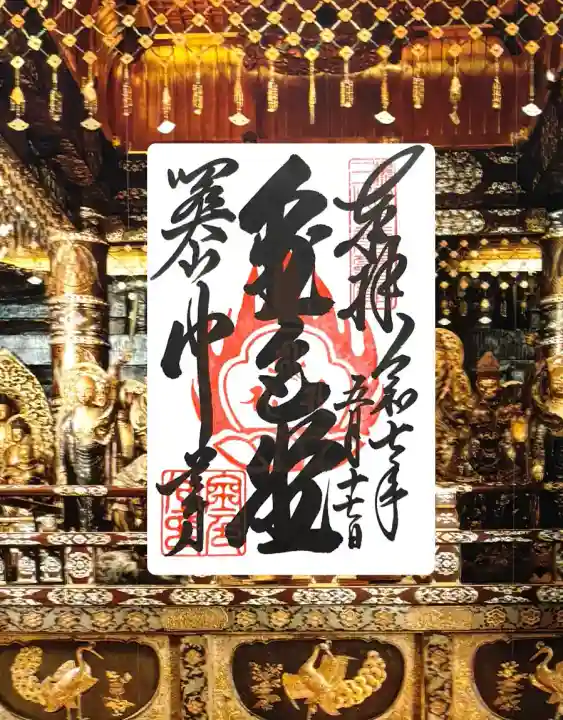 奉拝 令和七年
五月十七日
金色堂
關山中尊寺